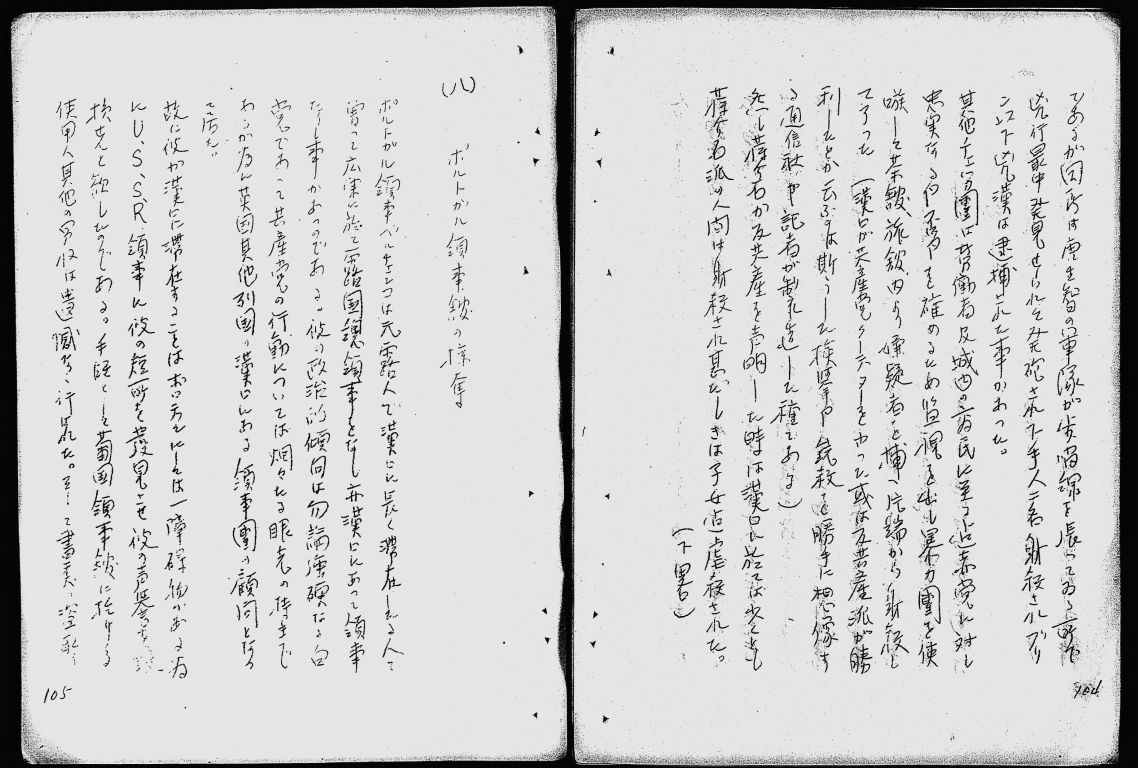 であるが同所は唐生智の軍隊が歩哨線を張ってゐる所で
兇行最中発見せられて発砲され下手人二名射殺され
以下兇漢は逮捕された事があった。
其他チェカ團は労働者及城内の市民に至る迄赤党に対し
忠実なるや否やを確めるため監視を出し暴力團を使
嗾して茶館、旅館内の嫌疑者を捕へ片端から射殺し
てアった(漢口が共産党クーデターをやった或は反共産派が勝
利したとか云ふのは斯うした検挙や銃殺を勝手に想像す
る通信社や記者が制造した種である)
然し蒋介石が反共産を声明した時は漢口に於ては少くとも
蒋介石派の人間は射殺され甚だしきは子女迄虐殺された。
104
(八)
ポルトガル領事館の掠奪
ポルトガル領事ベルチェンコは元露人で漢口に長く滞在した人で
嘗つて広東に於て露国総領事をなし亦漢口にあって領事
たりし事があつのである。彼の政治的傾向は勿論強硬なる白
党であって共産党の行動については炯々たる眼光の持主で
あるが為に英国其他列国の漢口にある領事團の顧問となっ
て居た。
故に彼が漢口に滞在することはボロヂンにとっては一障碍物がある為
にU.S.S.R領事に彼の短所を發見させ彼の声望を
損せんと欲したのである。手段として葡国領事館に於ける
使用人其他の買収は遺憾なく行はれた。
105